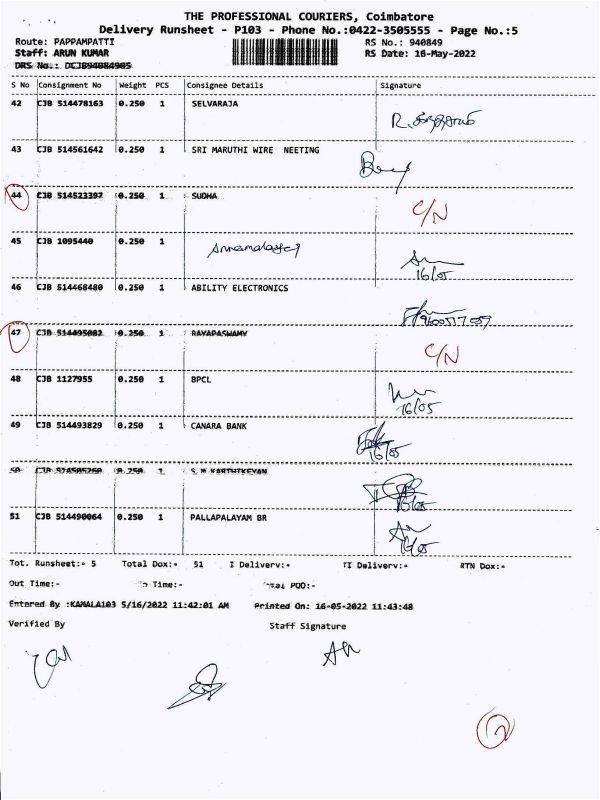 THE PROFESSIONAL COURIERS, Coimbatore
Delivery Runsheet - P103 - Phone No.:0422-3505555 - Page No.:5
Route: PAPPAMPATTI RS No.: 940849
Staff: ARUN KUMAR RS Date: 16-May-2022
DRS No.: DCJB94084905
S No Consignment No Weight PCS Consignee Details Signature
42 CJB 514478163 0.250 1 SELVARAJA
43 CJB 514561642 0.250 1 SRI MARUTHI WIRE NEETING
44 CJB 514523397 0.250 1 SUDHA C/N
45 CJB 1095440 0.250 1 Annamalai
16/05
46 CJB 514468480 0.250 1 ABILITY ELECTRONICS
47 CJB 514495082 0.250 1 RAYAPASHAMY C/N
48 CJB 1127955 0.250 1 BPCL
16/05
49 CJB 514493829 0.250 1 CANARA BANK
16/05
50 CJB 1 S M KARTHIKEYAN
16/05
51 CJB 514490064 0.250 1 PALLAPALAYAM BR
16/05
Tot. Runsheet:- 5 Total Dox:- 51 I Delivery:- II Delivery:- RTN Dox:-
Out Time:- In Time:- Total POD:-
Entered By :KAMALA103 5/16/2022 11:42:01 AM Printed On: 16-05-2022 11:43:48
Verified By Staff Signature